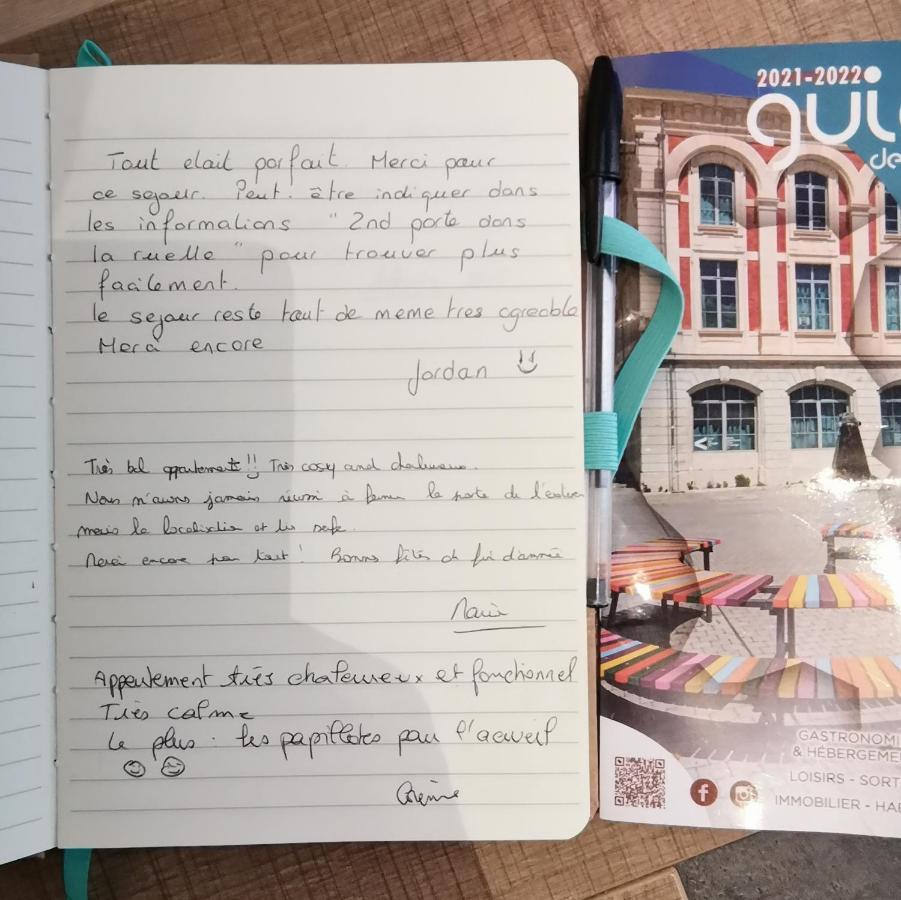 Tout etait parfait. Merci pour
ce sejour. Peut. être indiquer dans
les informations "2nd porte dans
la ruelle" pour trouver plus
facilement.
le sejour reste tout de meme tres agreable
Merci encore
Jordan
Très bel appartement !! Très cosy and chaleureux.
Nous n'avons jamais réussi à fermer la porte de l'
mais la localisation et les
Merci encore pour tout ! Bonnes fêtes de fin d'année
Marie
Appartement très chaleureux et fonctionnel
Très calme
Le plus : les papillotes pour l'accueil
2021-2022
gui
de
GASTRONOMI
& HÉBERGEME
LOISIRS - SORT
IMMOBILIER - HAB